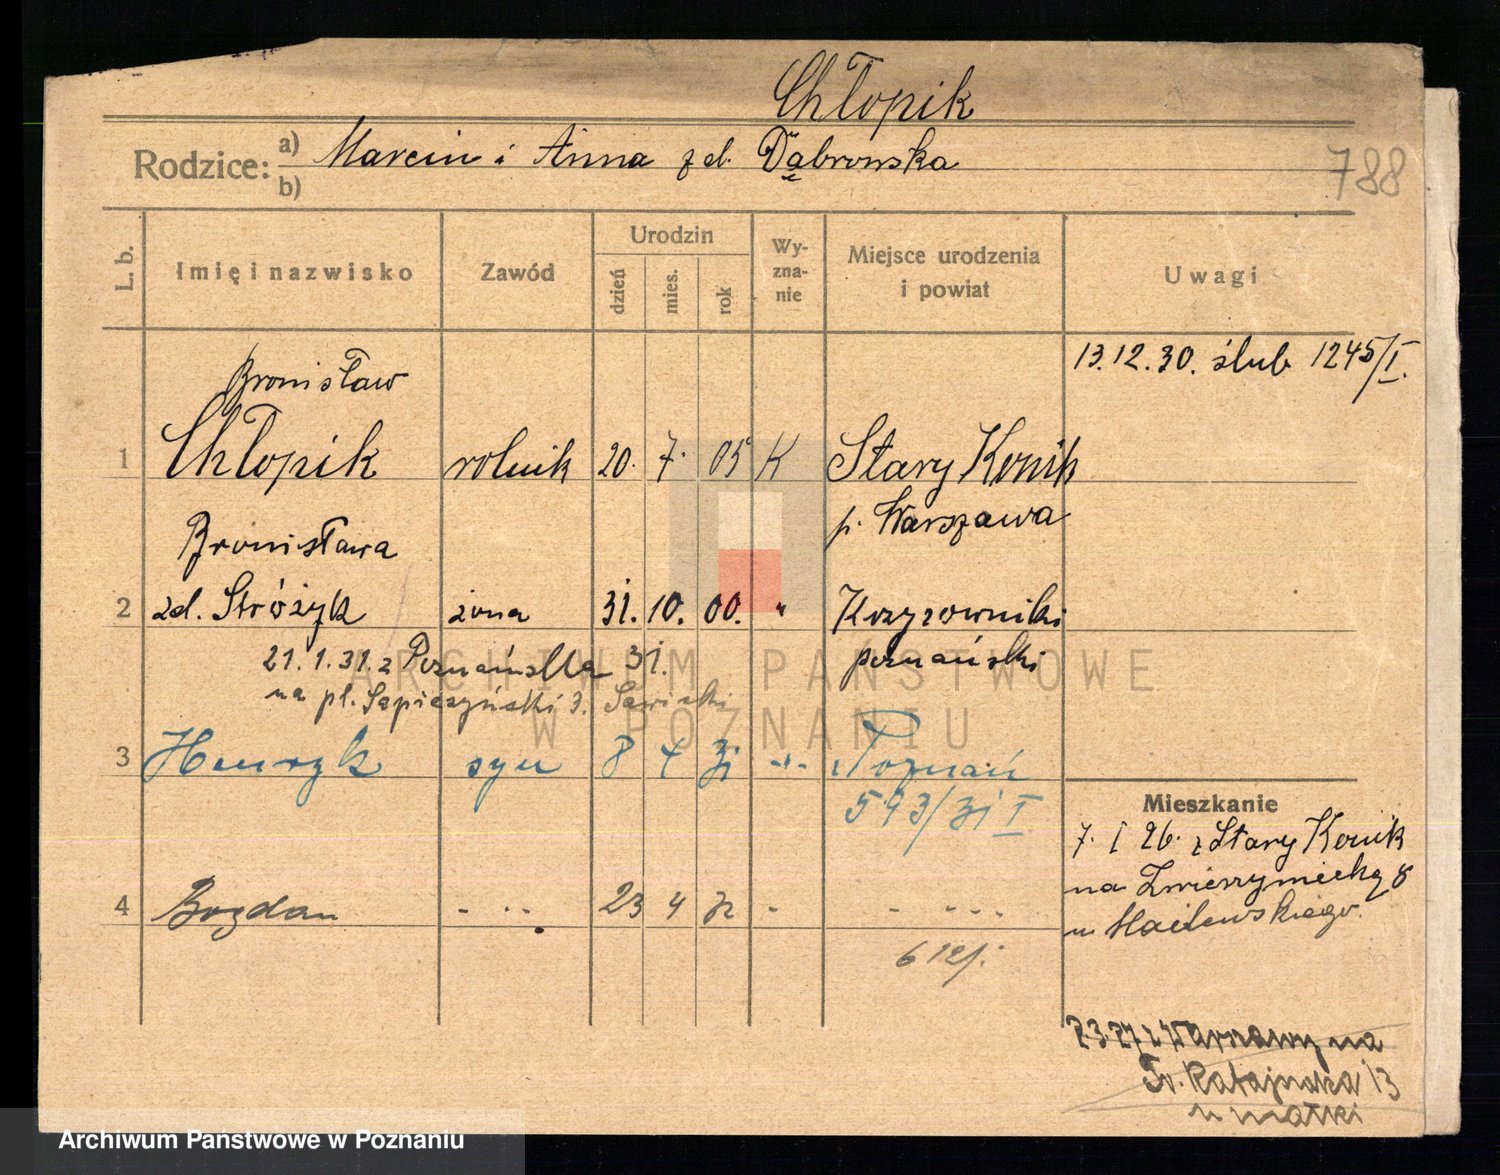 Chłopik
Rodzice: a) Marcin i Anna z d. Dąbrowska
b)
788
L. b.
Imię i nazwisko
Zawód
Urodzin
dzień
mies.
rok
Wy-
zna-
nie
Miejsce urodzenia
i powiat
Uwagi
13.12.30. ślub 1245/I.
Bronisław
1 Chłopik rolnik 20. 7. 05 K Stary Konik
p. Warszawa
Bronisława
2 zd. Stróżyk żona 31. 10. 00. " Krzyżowniki
poznański
21.1.31. z Poznańska 31.
na pl. Sapieżyński 3. Sawicki
3 Henryk syn 8 4 31 -"- Poznań
593/31 I
4 Bogdan - -- 23 4 32 - - ---
612/.
Mieszkanie
7. I 26. z Stary Konik
na Zwierzyniecką 8
u
2.3.27 z Warszawy na
Fr. Ratajczaka 13
u matki
ARCHIWUM PAŃSTWOWE
W POZNANIU
Archiwum Państwowe w Poznaniu